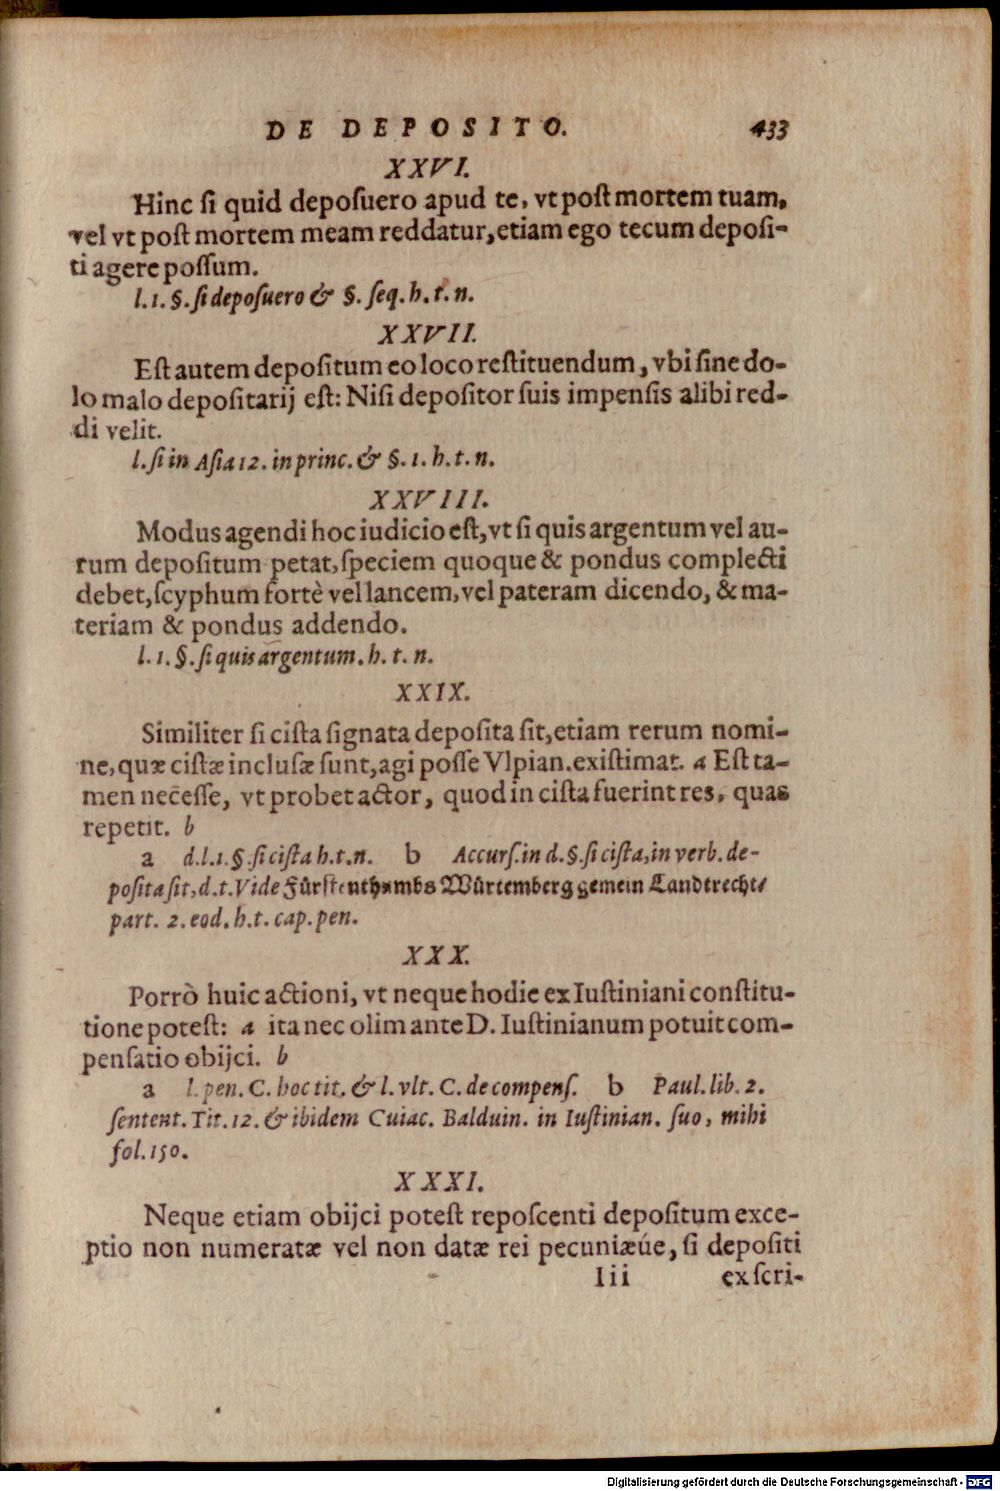 DE DEPOSITO. 433
XXVI.
Hinc ſi quid depoſuero apud te, vt poſt mortem tuam,
vel vt poſt mortem meam reddatur, etiam ego tecum depoſi-
ti agere poſſum.
l. 1. §. ſi depoſuero & §. ſeq. h. t. n.
XXVII.
Eſt autem depoſitum eo loco reſtituendum, vbi ſine do-
lo malo depoſitarij eſt: Niſi depoſitor ſuis impenſis alibi red-
di velit.
l. ſi in Aſia 12. in princ. & §. 1. h. t. n.
XXVIII.
Modus agendi hoc iudicio eſt, vt ſi quis argentum vel au-
rum depoſitum petat, ſpeciem quoque & pondus complecti
debet, ſcyphum fortè vel lancem, vel pateram dicendo, & ma-
teriam & pondus addendo.
l. 1. §. ſi quis argentum. h. t. n.
XXIX.
Similiter ſi ciſta ſignata depoſita ſit, etiam rerum nomi-
ne, quæ ciſtæ incluſæ ſunt, agi poſſe Vlpian. exiſtimat. a Eſt ta-
men neceſſe, vt probet actor, quod in ciſta fuerint res, quas
repetit. b
a d. l. 1. §. ſi ciſta h. t. n. b Accurſ. in d. §. ſi ciſta, in verb. de-
poſita ſit, d. t. Vide Fürſtenthumbs Würtemberg gemein Landtrecht/
part. 2. eod. h. t. cap. pen.
XXX.
Porrò huic actioni, vt neque hodie ex Iuſtiniani conſtitu-
tione poteſt: a ita nec olim ante D. Iuſtinianum potuit com-
penſatio obijci. b
a l. pen. C. hoc tit. & l. vlt. C. de compenſ. b Paul. lib. 2.
ſentent. Tit. 12. & ibidem Cuiac. Balduin. in Iuſtinian. ſuo, mihi
fol. 150.
XXXI.
Neque etiam obijci poteſt repoſcenti depoſitum exce-
ptio non numeratæ vel non datæ rei pecuniæúe, ſi depoſiti
Iii ex ſcri-
Digitalisierung gefördert durch die Deutsche Forschungsgemeinschaft - DFG